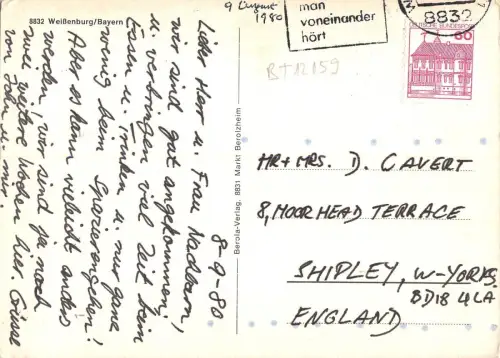 8832 Weißenburg/Bayern
8-9-80
Lieber Herr u. Frau Nachbarn,
wir sind gut angekommen,
u. verbringen viel Zeit beim
Essen u. Trinken u. nur ganz
wenig beim Spazierengehen!
Aber es kann vielleicht anders
werden, wir sind ja noch
zwei weitere Wochen hier. Grüsse
von John u. mir.
Berola-Verlag, 8831 Markt Berolzheim
9 August
1980
man
voneinander
hört
8832
DEUTSCHE BUNDESPOST
60
B+12159
MR+MRS. D. CAVERT
8, MOORHEAD TERRACE
SHIPLEY, W-YORKS.
BD18 4LA
ENGLAND